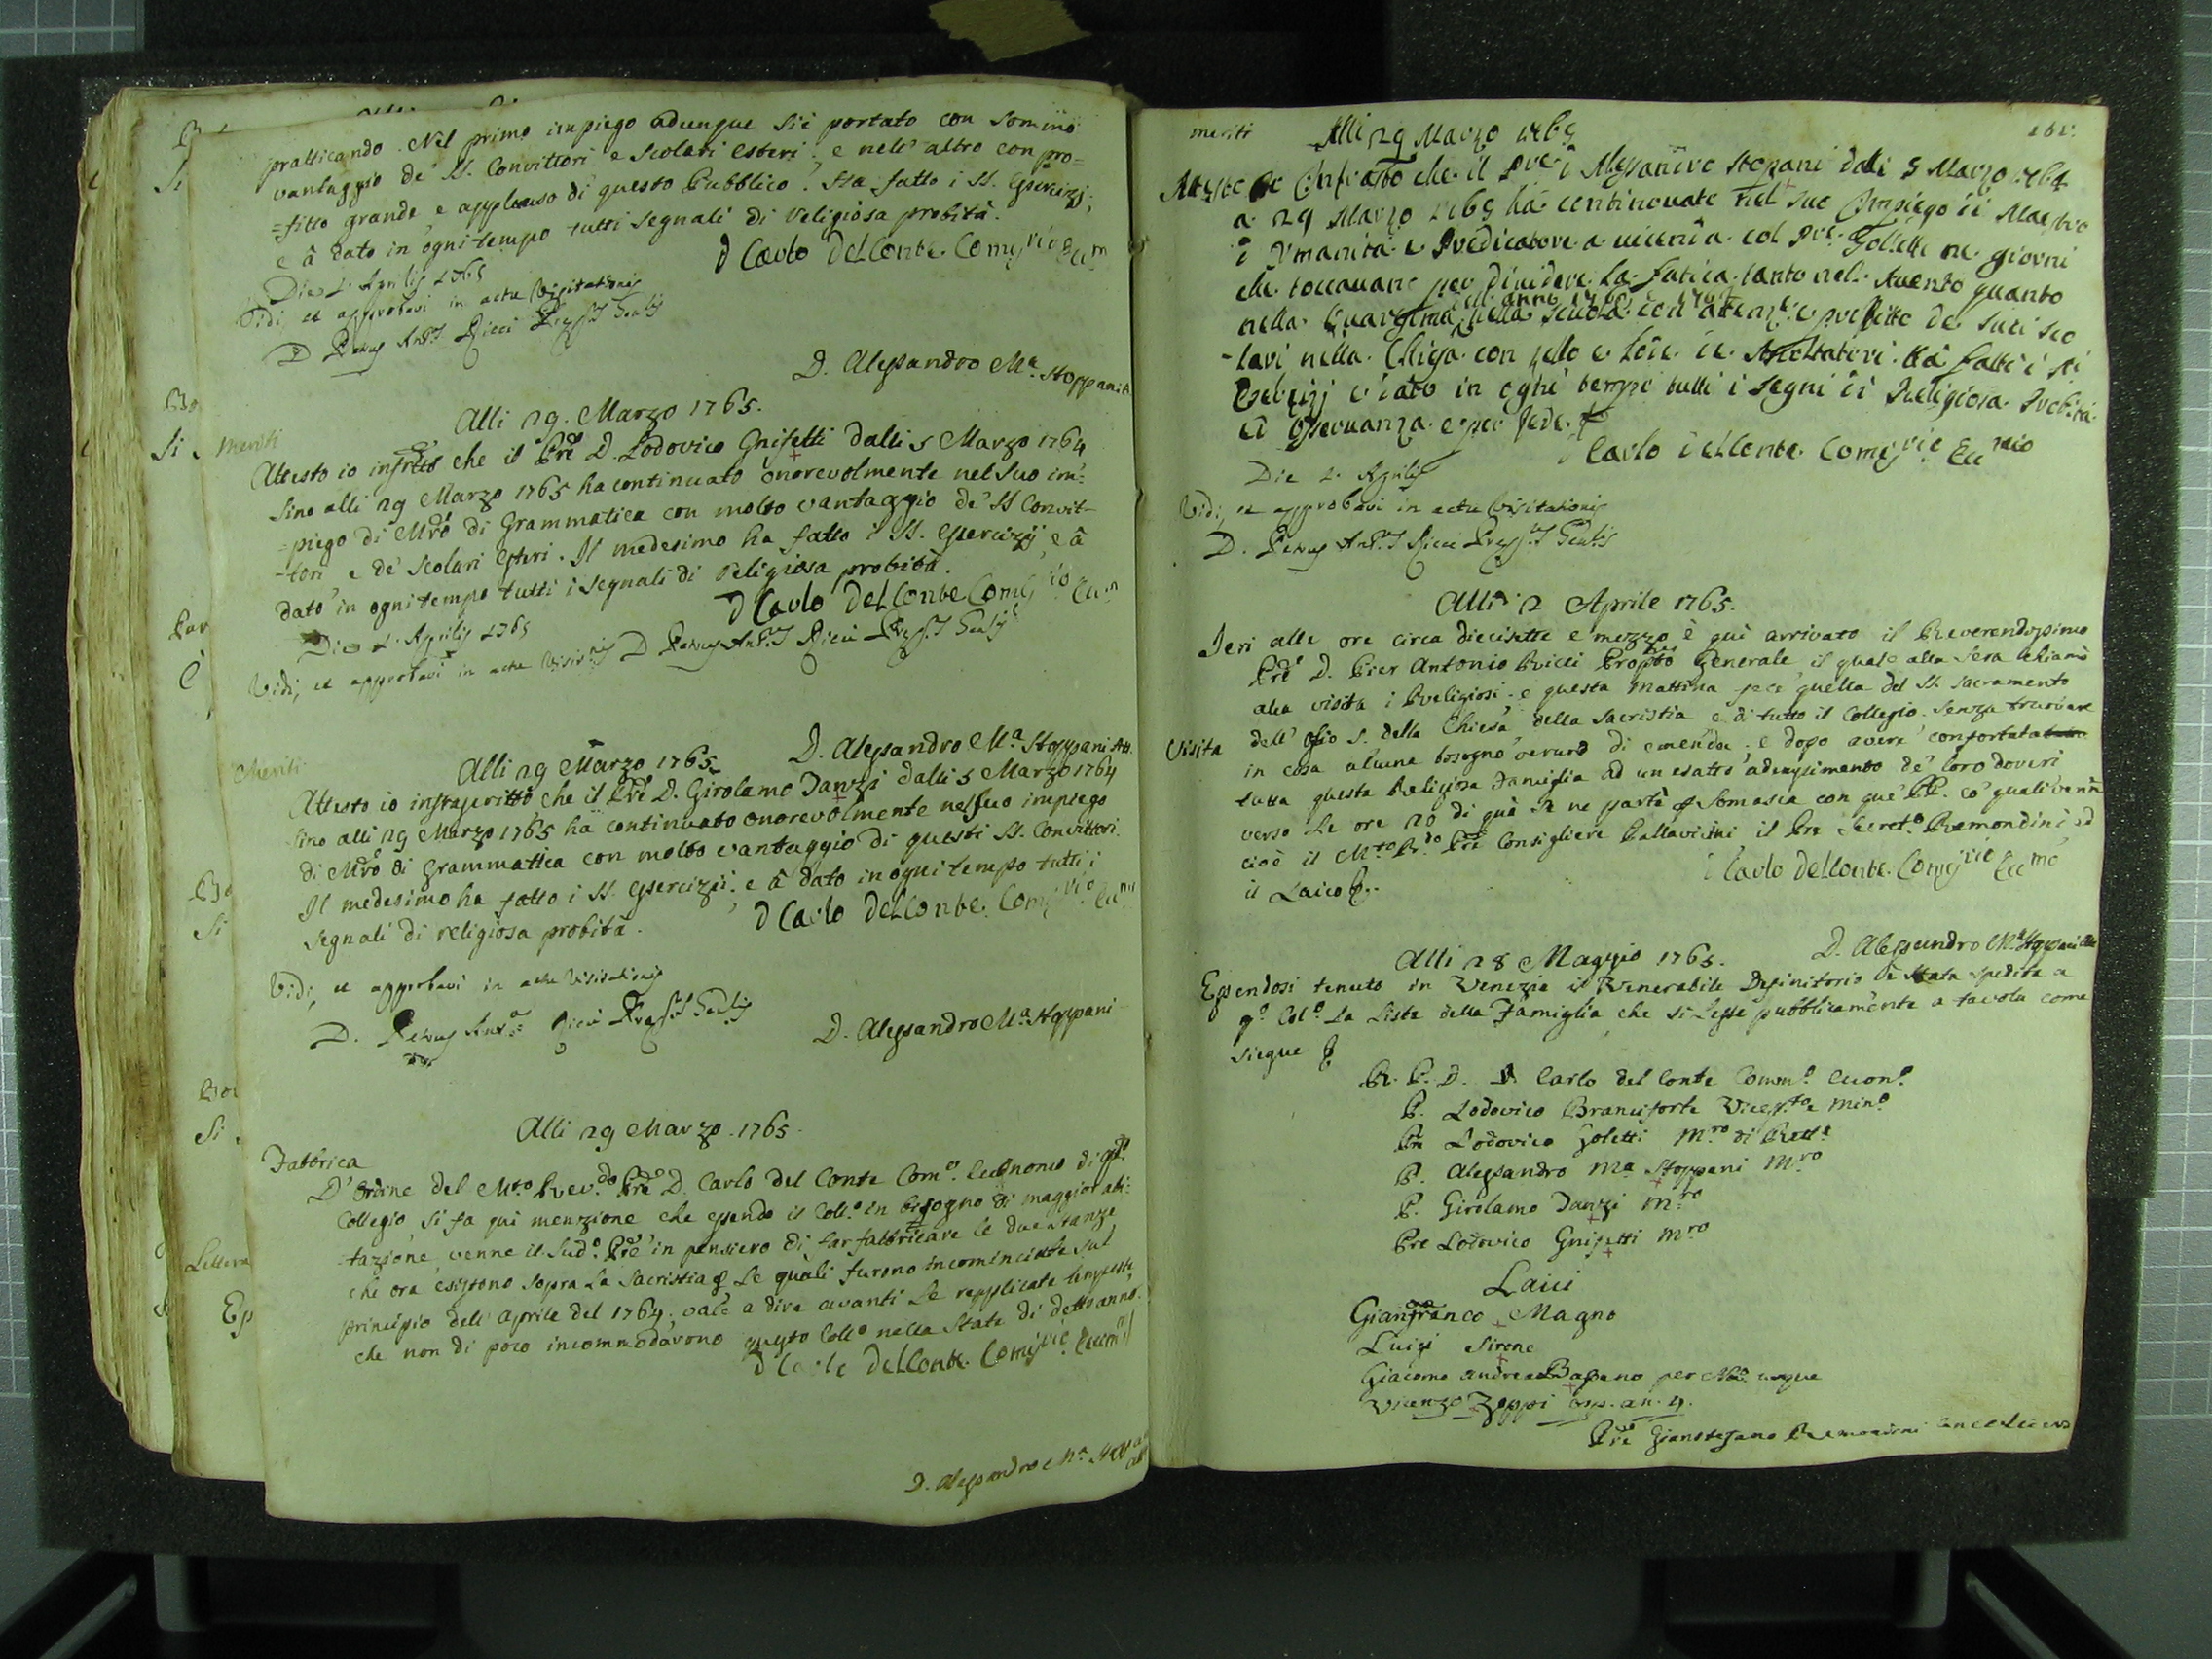 pratticando. Nel primo impiego adunque si è portato con sommo
vantaggio de' SS. Convittori e Scolari esteri; e nell' altro con pro=
=fitto grande e applauso di questo Pubblico. Ha fatto i SS. Esercizj,
e â dato in ogni tempo tutti segnali di religiosa probità.
D Carlo Del Conte
Die 2. Aprilis 1765
Vidi, et approbavi in actu Visitationis
D. Petrus Ant.s Ricci
D. Alessandro Ma. Stoppani
Alli 29. Marzo 1765.
Meriti
Attesto io infrtto che il Pre D. Lodovico Gnifetti dalli 5 Marzo 1764
sino alli 29 Marzo 1765 ha continuato onorevolmente nel suo im=
=piego di Mrô di Grammatica con molto vantaggio de' SS Convit-
-tori e de' Scolari esteri. Il medesimo ha fatto i SS. Esercizij, e â
dato in ogni tempo tutti i segnali di Religiosa probità.
D Carlo Del Conte
Die 2. Aprilis 1765
Vidi, et approbavi in actu D Petrus Ant.s Ricci
D. Alessandro Ma. Stoppani Att.
Alli 29 Marzo 1765
Meriti
Attesto io infrascritto che il Pre D. Girolamo Danzi dalli 5 Marzo 1764
sino alli 29 Marzo 1765 ha continuato onorevolmente nel suo impiego
di Mrô di Grammatica con molto vantaggio di questi SS. Convittori.
Il medesimo ha fatto i SS. Esercizii; e â dato in ogni tempo tutti i
segnali di religiosa probità.
D Carlo Del Conte
Vidi, et approbavi in actu Visitationis
D. Petrus Ricci
D. Alessandro Ma. Stoppani
Alli 29 Marzo. 1765
Fabbrica
D' ordine del Mto Rev.do Pre D. Carlo Del Conte Com.o Economo di qto
Collegio si fa quì menzione che essendo il Coll.o in bisogno di maggior abi=
tazione, venne il Sud.o Pre in pensiero di far fabbricare le due stanze
che ora esistono sopra la Sacristia le quali furono incominciate sul
principio dell' Aprile del 1764. vale a dire avanti le replicate tempeste,
che non di poco incommodavono questo Coll.o nella State di detto anno.
D Carlo Del Conte
D. Alessandro Ma.
meriti
Alli 29 Marzo 1765
che il Pre D Alessandro Stopani dalli 5 Marzo 1764
a 29 Marzo 1765 hà continovato nel suo Impiego di Maestro
d' Umanità e Predicatore a vicenda col Pre Goletti ne giorni
che toccavano per dividere la fatica tanto nell' Avento quanto
nella scuola con e profitto de suoi sco
-lari nella Chiesa con zello e
Esercizj e dato in ogni tempo tutti i segni di Religiosa Probità
ed osservanza e per fede
Carlo Del Conte
Die 2. Aprilis
Vidi, et approbavi in actu Visitationis
D. Petrus Ant.s Ricci
Alli 2 Aprile 1765.
Jeri alle ore circa diecisette e mezzo è quì arrivato il Reverendissimo
Pre D. Pier Antonio Ricci Propto Generale il quale alla sera chiamò
alla visita i Religiosi, e questa mattina fece quella del SS. Sacramento
dell' Oglio S. della Chiesa della Sacristia e di tutto il Collegio senza trovare
Visita
in cosa alcuna bisogno veruno di emenda; e dopo avere confortata
tutta questa Religiosa Famiglia ad un esatto adempimento de' loro doveri
verso le ore 20 di quà se ne partì p Somasca con que' PP. co' quali venne
cioè il Mto R.do Pre Consigliere Pallavicini, il Pre Secret.o Remondini, ed
il Laico
Carlo Del Conte
Alli 28 Maggio 1765.
D. Alessandro Ma Stoppani
Essendosi tenuto in Venezia il Venerabile Definitorio è stata spedita a
q.o Col.o la Lista della Famiglia, che si lesse pubblicamente a tavola come
siegue
R. P. D. Carlo del Conte Comm.o Econ.o
P. Lodovico Branciforte
Pre Lodovico Goletti M.ro di Rett.a
P. Alessandro Ma Stoppani M.ro
P. Girolamo Danzi M.ro
Pre Lodovico Gnifetti Mro
Laici
Gianfranco Magno
Luigi Sirone
Giacomo Andrea
Vicenzo Zoppi osp. an. 4.
Pre Gianstefano Remondini